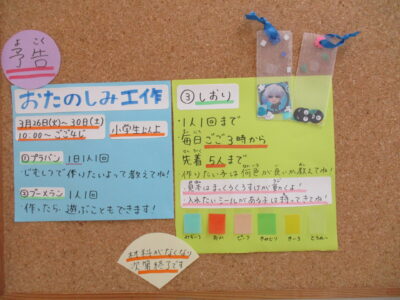 よこく
予告
おたのしみ工作
3月26日(火)~30日(土)
10:00~ごご4じ
小学生いじょう
①プラバン 1日1人1回
じむしつで作りたいよって教えてね!
②ブーメラン 1人1回
作ったら 遊ぶこともできます!
③しおり
1人1回まで
毎日ごご3時から
先着 5人まで
作りたい子は何色が良いか教えてね!
見本はまっくろくろすけが動くよ!
入れたいシールがある子は持ってきてね!
みずいろ あか ピンク きみどり きいろ とうめい
材料がなくなり
次第終了です